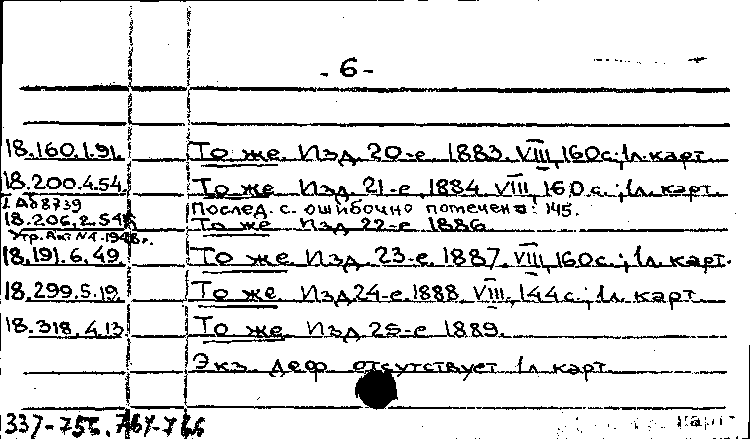 - 6 -
18.160.1.91. То же. Изд. 20-е. 1883. VIII, 160 с.; 1 л. карт.
18.200.4.54 То же. Изд. 21-е. 1884. VIII, 160 с.; 1 л. карт.
Послед. с. ошибочно помечена: 145.
18.206.2.54 То же Изд 22-е 1886.
Утр. Акт №1. 1948 г.
18.191.6.49. То же. Изд. 23-е. 1887. VIII, 160 с.; 1 л. карт.
18.299.5.19. То же. Изд 24-е. 1888. VIII, 144 с.; 1 л. карт.
18.318.4.13 То же. Изд. 25-е 1889.
Экз. деф. отсутствует 1 л карт.
карт